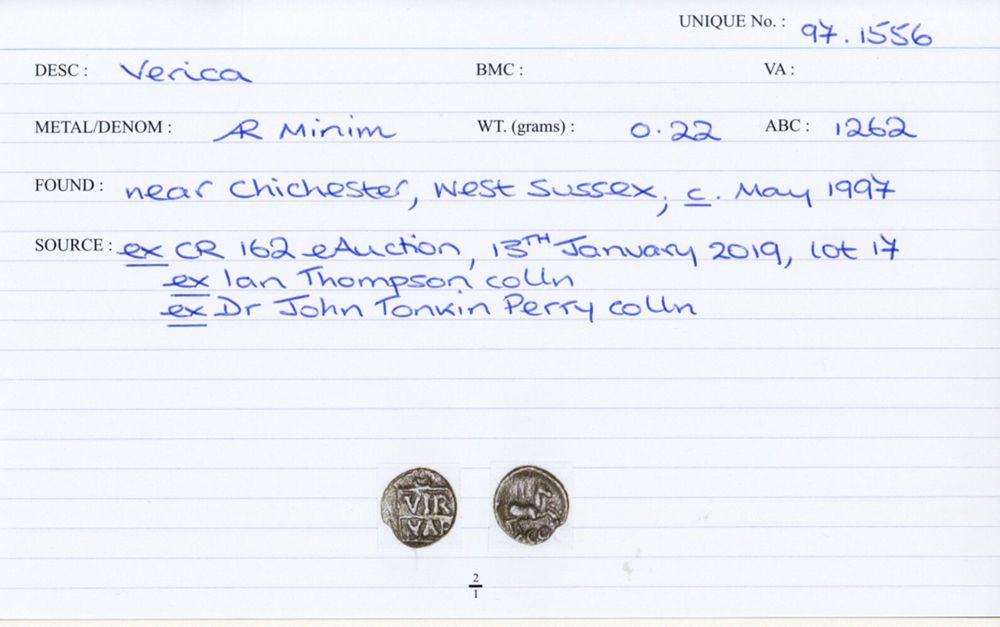 UNIQUE No. : 97.1556
DESC : Verica BMC : VA :
METAL/DENOM : AR Minim WT. (grams) : 0.22 ABC : 1262
FOUND : near Chichester, West Sussex, c. May 1997
SOURCE : ex CR 162 eAuction, 13TH January 2019, lot 17
ex Ian Thompson colln
ex Dr John Tonkin Perry colln
VIR
VAR
2
1